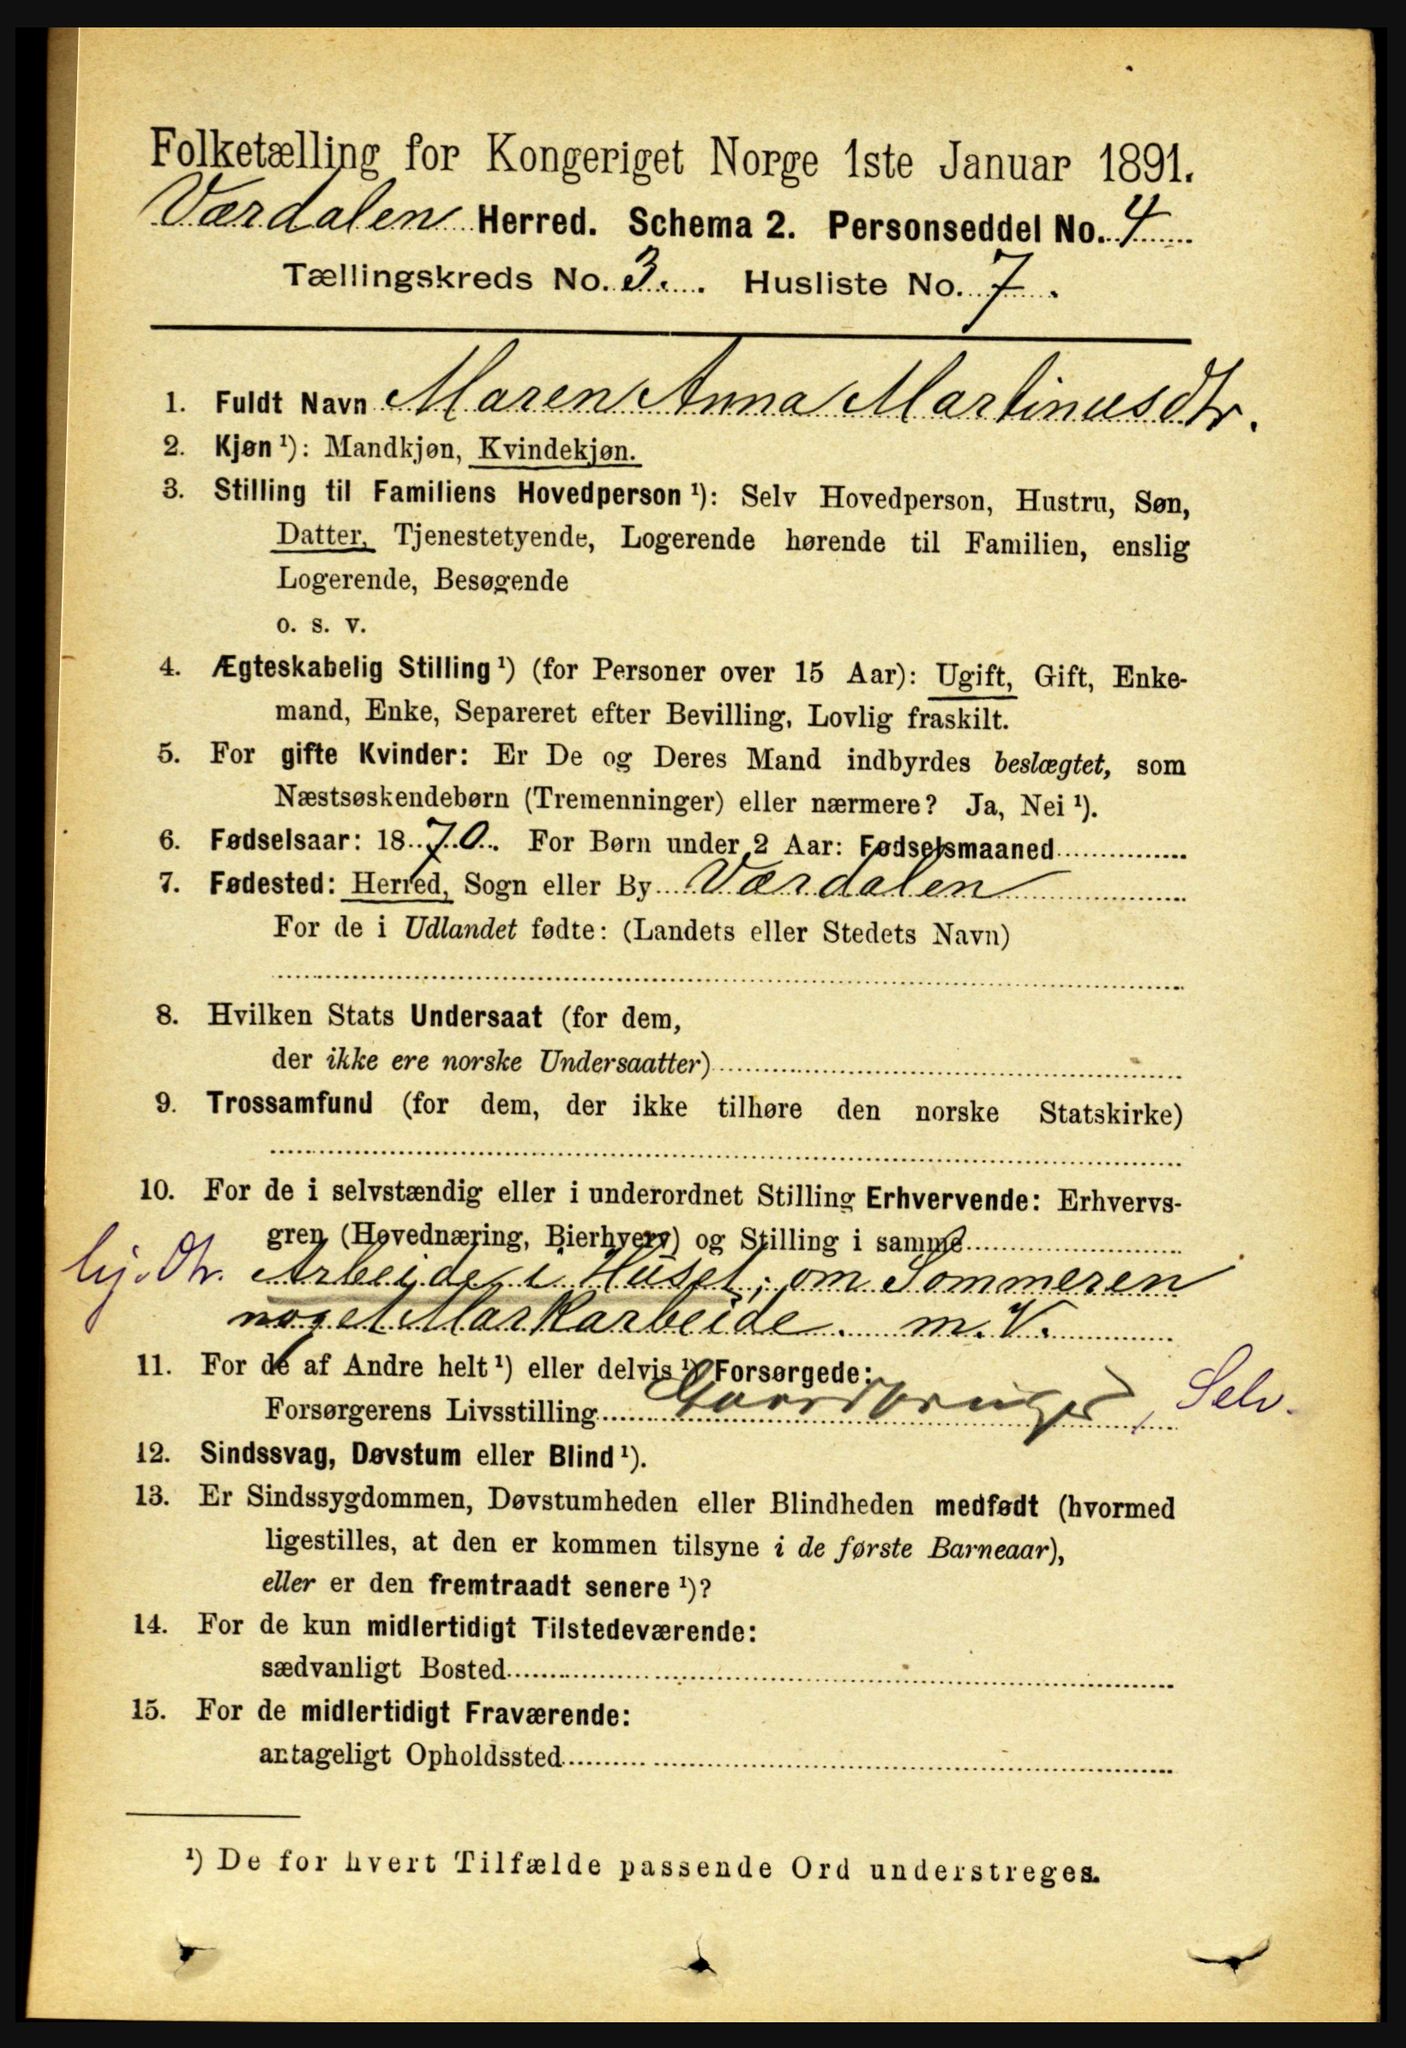 Folketælling for Kongeriget Norge 1ste Januar 1891.
Værdalen Herred. Schema 2. Personseddel No. 4
Tællingskreds No. 3. Husliste No. 7.
1. Fuldt Navn Maren Anna Martinusdtr.
2. Kjøn ¹): Mandkjøn, Kvindekjøn.
3. Stilling til Familiens Hovedperson ¹): Selv Hovedperson, Hustru, Søn,
Datter, Tjenestetyende, Logerende hørende til Familien, enslig
Logerende, Besøgende
o. s. v.
4. Ægteskabelig Stilling ¹) (for Personer over 15 Aar): Ugift, Gift, Enke-
mand, Enke, Separeret efter Bevilling, Lovlig fraskilt.
5. For gifte Kvinder: Er De og Deres Mand indbyrdes beslægtet, som
Næstsøskendebørn (Tremenninger) eller nærmere? Ja, Nei ¹).
6. Fødselsaar: 1870. For Børn under 2 Aar: Fødselsmaaned
7. Fødested: Herred, Sogn eller By Værdalen
For de i Udlandet fødte: (Landets eller Stedets Navn)
8. Hvilken Stats Undersaat (for dem,
der ikke ere norske Undersaatter)
9. Trossamfund (for dem, der ikke tilhøre den norske Statskirke)
10. For de i selvstændig eller i underordnet Stilling Erhvervende: Erhvervs-
gren (Hovednæring, Bierhverv) og Stilling i samme
hj. Dtr. Arbeide i Huset; om Sommeren
noget Markarbeide. m. V.
11. For de af Andre helt ¹) eller delvis ¹) Forsørgede:
Forsørgerens Livsstilling Gaardbruger, Selv.
12. Sindssvag, Døvstum eller Blind ¹).
13. Er Sindssygdommen, Døvstumheden eller Blindheden medfødt (hvormed
ligestilles, at den er kommen tilsyne i de første Barneaar),
eller er den fremtraadt senere ¹)?
14. For de kun midlertidigt Tilstedeværende:
sædvanligt Bosted
15. For de midlertidigt Fraværende:
antageligt Opholdssted
¹) De for hvert Tilfælde passende Ord understreges.